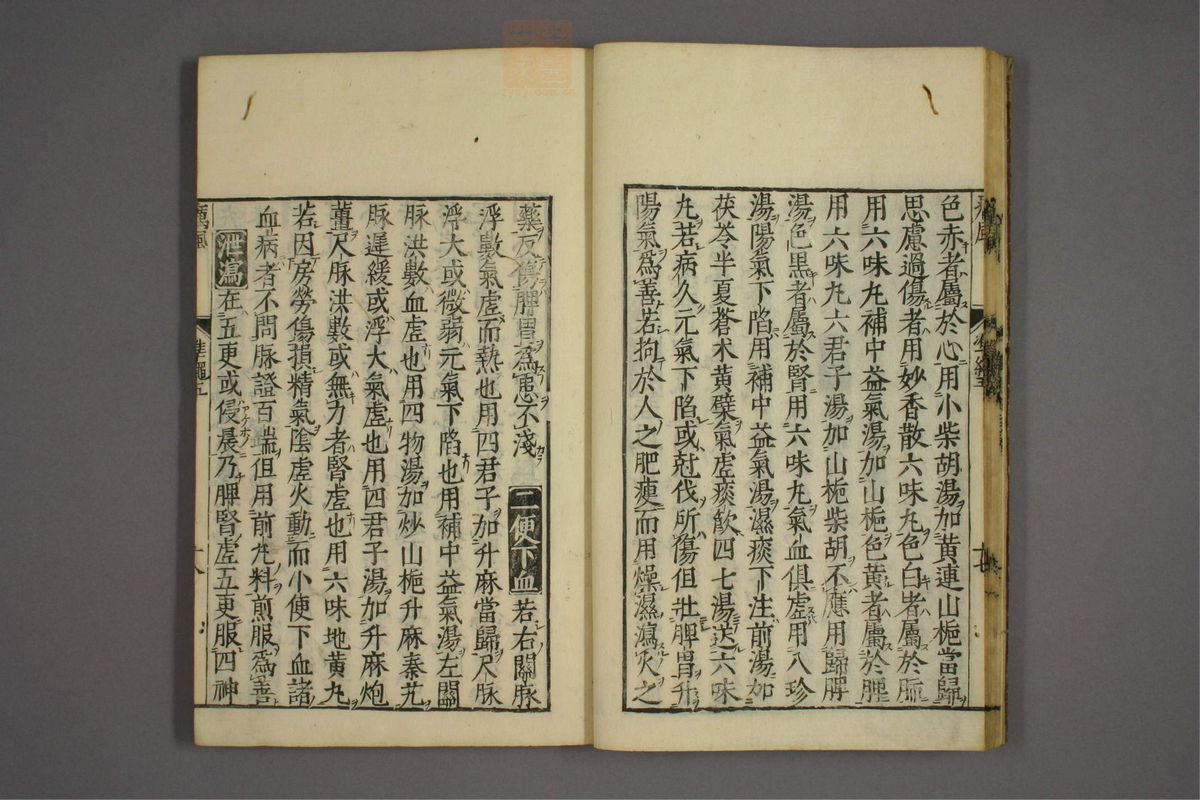 色赤者屬於心用小柴胡湯加黃連山梔當歸
思慮過傷者用妙香散六味丸色白者屬於肺
用六味丸補中益氣湯加山梔色黃者屬於脾
用六味丸六君子湯加山梔柴胡不應用歸脾
湯色黑者屬於腎用六味丸氣血俱虛用八珍
湯陽氣下陷用補中益氣湯濕痰下注前湯加
茯苓半夏蒼朮黃檗氣虛痰飲四七湯送六味
丸若病久元氣下陷或尅伐所傷但壯脾胃升
陽氣為善若拘於人之肥瘦而用燥濕瀉火之
藥反傷脾胃為患不淺 二便下血 若右關脉
浮數氣虛而熱也用四君子加升麻當歸尺脉
浮大或微弱元氣下陷也用補中益氣湯左關
脉洪數血虛也用四物湯加炒山梔升麻秦艽
脉遲緩或浮大氣虛也用四君子湯加升麻炮
薑尺脉洪數或無力者腎虛也用六味地黃丸
若因房勞傷損精氣陰虛火動而小便下血諸
血病者不問脉證百端但用前丸料煎服為善
泄瀉 在五更或侵晨乃脾腎虛五更服四神
癘風
準繩五
十八